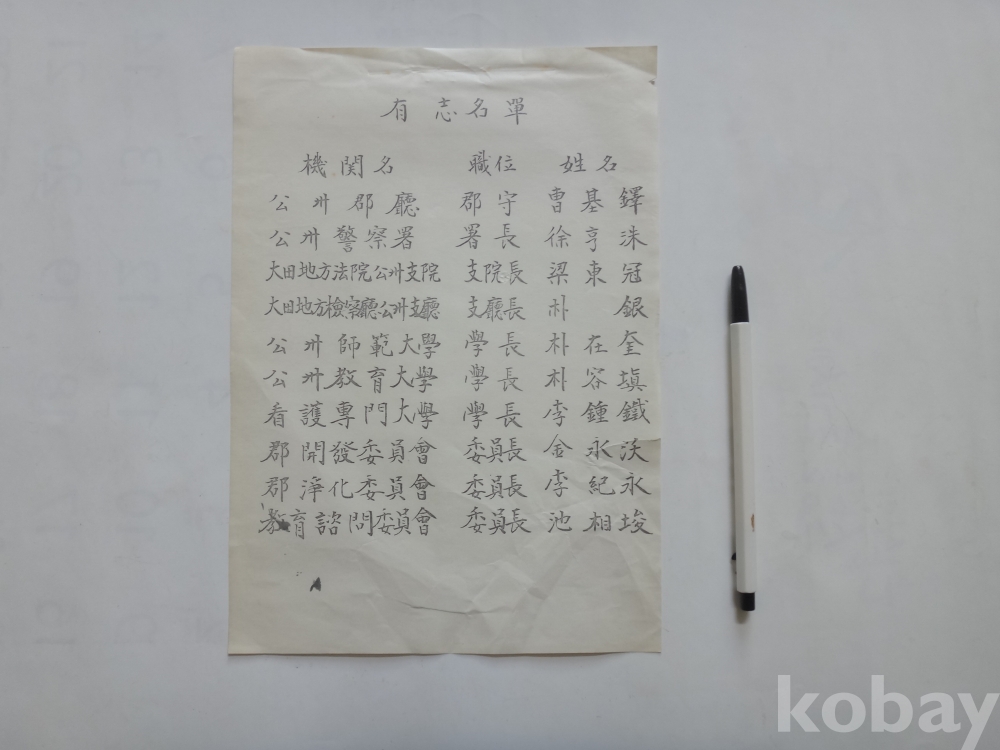 有志名單
機関名 職位 姓名
公州郡廳 郡守 曺基鐸
公州警察署 署長 徐亨洙
大田地方法院公州支院 支院長 梁東冠
大田地方檢察廳公州支廳 支廳長 朴 銀
公州師範大學 學長 朴在奎
公州教育大學 學長 朴容塡
看護專門大學 學長 李鍾鐵
郡開發委員會 委員長 金永沃
郡淨化委員會 委員長 李紀永
教育諮問委員會 委員長 池相埈
kobay